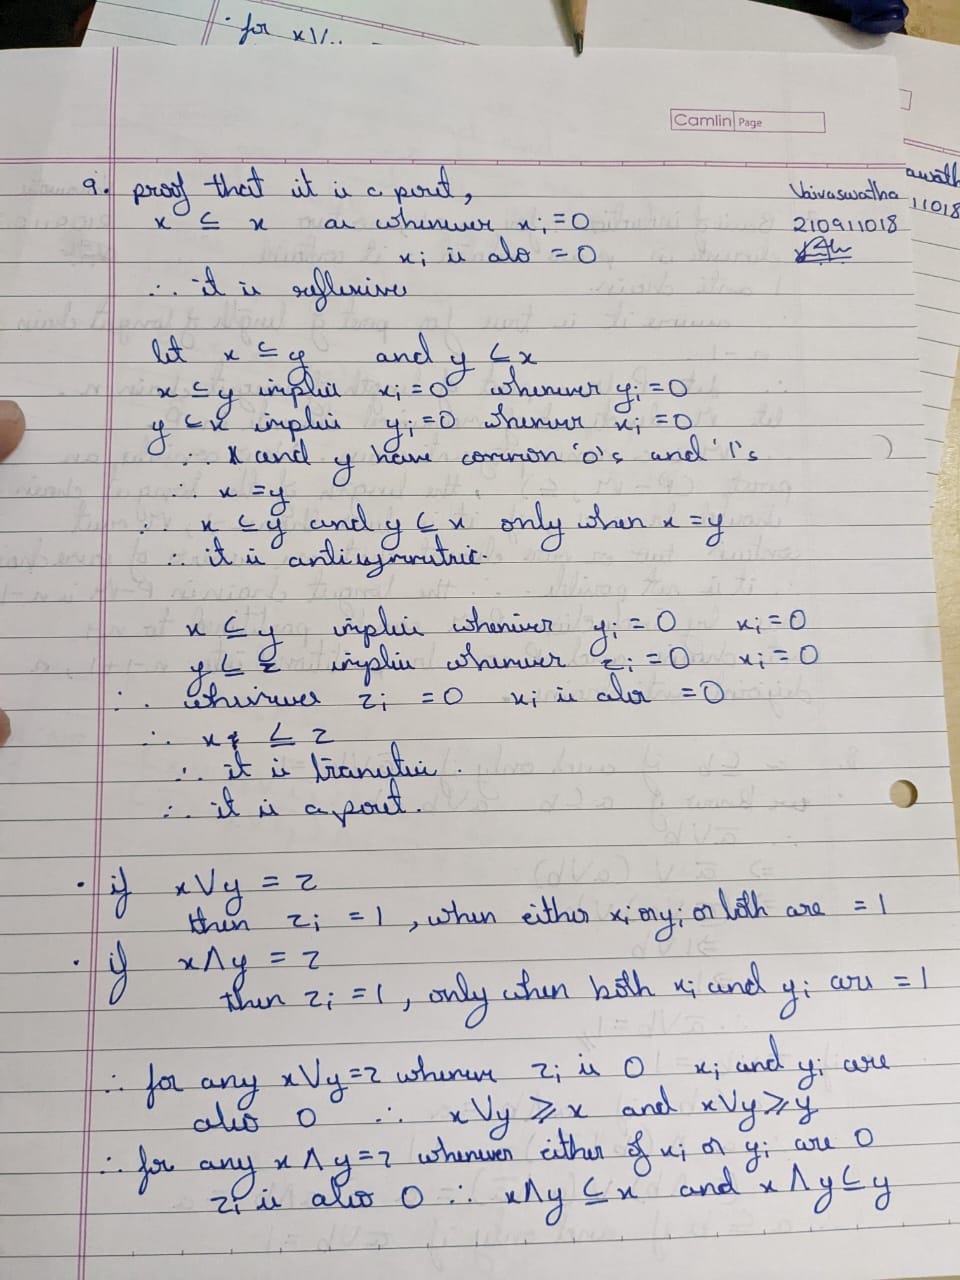 . for x V..
Camlin Page
awath
11018
Vaivaswatha
210911018
9. proof that it is a poset,
x ⊆ x as whenever xi = 0
xi is also = 0
∴ it is reflexive
let x ⊆ y and y ⊆ x
x ⊆ y implies xi = 0 whenever yi = 0
y ⊆ x implies yi = 0 whenver xi = 0
∴ x and y have common '0's and '1's
∴ x = y
∴ x ⊆ y and y ⊆ x only when x = y
∴ it is antisymmetric.
x ⊆ y implies whenever yi = 0 xi = 0
y ⊆ z implies whenever zi = 0 xi = 0
∴ whenever zi = 0 xi is also = 0
∴ x ⊆ z
∴ it is transitive.
∴ it is a poset.
· if x V y = z
then zi = 1, when either xi or yi or both are = 1
· if x Λ y = z
then zi = 1, only when both xi and yi are = 1
∴ for any x V y = z whenever zi is 0 xi and yi are
also 0 ∴ x V y ⩾ x and x V y ⩾ y
∴ for any x Λ y = z whenever either of xi or yi are 0
zi is also 0 ∴ x Λ y ⊆ x and x Λ y ⊆ y